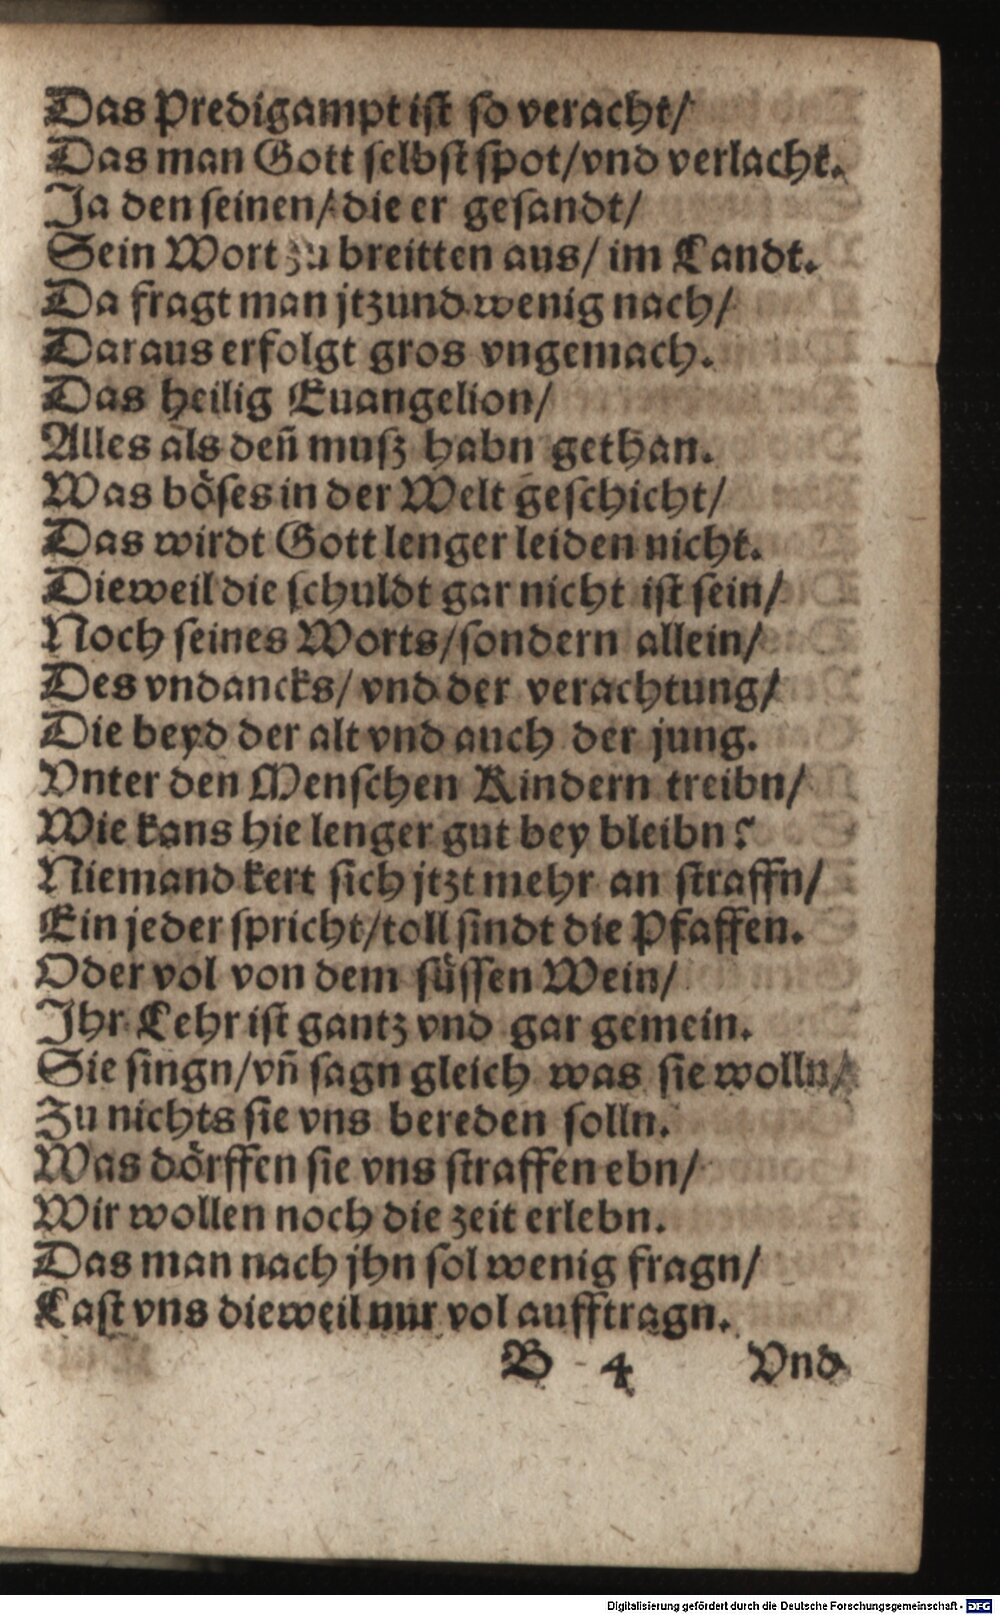 Das Predigampt ist so veracht/
Das man Gott selbst spot/vnd verlacht.
Ja den seinen/ die er gesandt/
Sein Wort zu breitten aus/ im Landt.
Da fragt man jtzund wenig nach/
Daraus erfolgt gros vngemach.
Das heilig Euangelion/
Alles als deñ musz habn gethan.
Was böses in der Welt geschicht/
Das wirdt Gott lenger leiden nicht.
Dieweil die schuldt gar nicht ist sein/
Noch seines Worts/sondern allein/
Des vndancks/ vnd der verachtung/
Die beyd der alt vnd auch der jung.
Vnter den Menschen Kindern treibn/
Wie kans hie lenger gut bey bleibn?
Niemand kert sich jtzt mehr an straffn/
Ein jeder spricht/toll sindt die Pfaffen.
Oder vol von dem süssen Wein/
Ihr Lehr ist gantz vnd gar gemein.
Sie singn/vñ sagn gleich was sie wolln/
Zu nichts sie vns bereden solln.
Was dörffen sie vns straffen ebn/
Wir wollen noch die zeit erlebn.
Das man nach jhn sol wenig fragn/
Last vns dieweil nur vol aufftragn.
B 4 Vnd
Digitalisierung gefördert durch die Deutsche Forschungsgemeinschaft - DFG